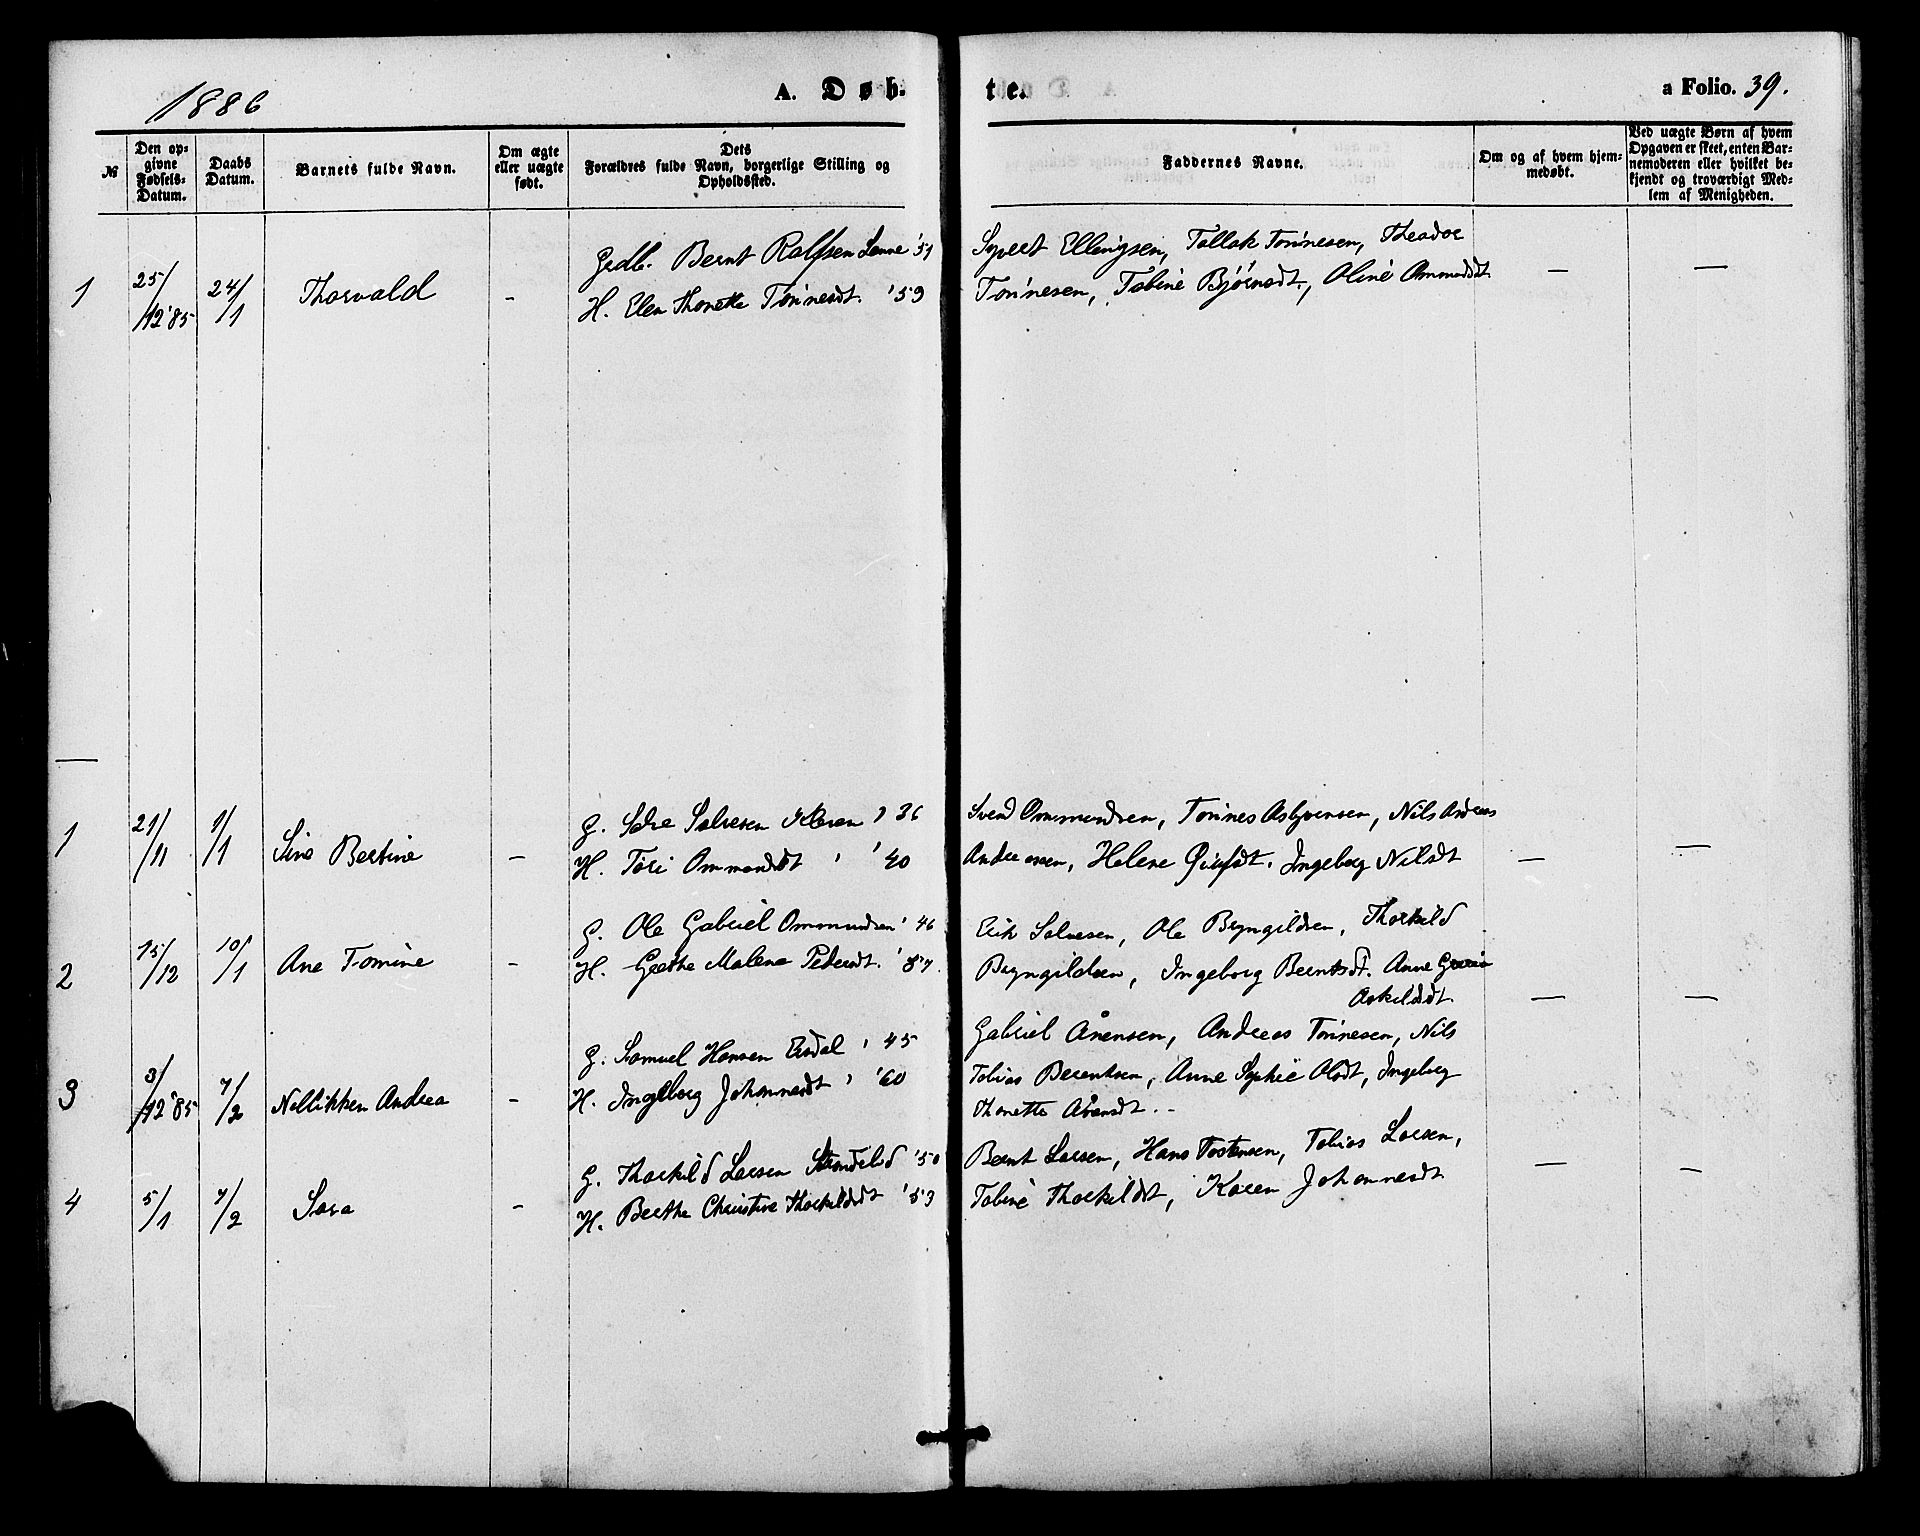 1886
A. Døb-
te.
a Folio. 39.
№
Den op-
givne
Fødsels-
Datum.
Daabs
Datum.
Barnets fulde Navn.
Om ægte
eller uægte
født.
Dets
Forældres fulde Navn, borgerlige Stilling og
Opholdssted.
Faddernes Navne.
Om og af hvem hjem-
medøbt.
Ved uægte Børn af hvem
Opgaven er skeet, enten Bar-
nemoderen eller hvilket be-
kjendt og troværdigt Med-
lem af Menigheden.
1
25/
/12 '85
24/
/1
Thorvald
-
Grdb. Bernt Ralfsen '51
H. Elen Thonette Tønnesdt. '59
Sivert Ellingsen, Tallak Tønnesen, Theodor
Tønnesen, Tobine Bjørnsdt., Oline Ommundsdt
—
—
—
1
21/
/11
1/
/1
Sine Bertine
-
G. Salvesen '36
H. Tori Ommundsdt ' '40
Svend Ommundsen, Tønnes Asbjørnsen, Nils Andreas
Andreassen, Helene Ingeborg Nilsdt
—
—
2
15/
/12
10/
/1
Ane Tomine
-
G. Ole Gabriel Ommundsen ' 46
H. Grethe Malene Pedersdt. '57.
Erik Salvesen, Ole Bryngildsen, Thorkild
Bryngildsen, Ingeborg Berntsdt. Anne
Askildsdt.
—
—
3
3/
/12 '85
7/
/2
Nellikken Andrea
-
G. Samuel Hansen Eisdal ' 45
H. Ingeborg Johannesdt ' '60
Gabriel Aanensen, Andreas Tønnesen, Nils
Tobias Berentsen, Anne Sophie Olsdt, Ingeborg
Thonette Aanensdt. -
4
5/
/1
7/
/2
Sara
-
G. Thorkild Larsen '50
H. Berthe Christine Thorkildsdt '53
Bernt Larsen, Hans Tostensen, Tobias Larsen,
Tobine Thorkildsdt, Karen Johannesdt
—
—